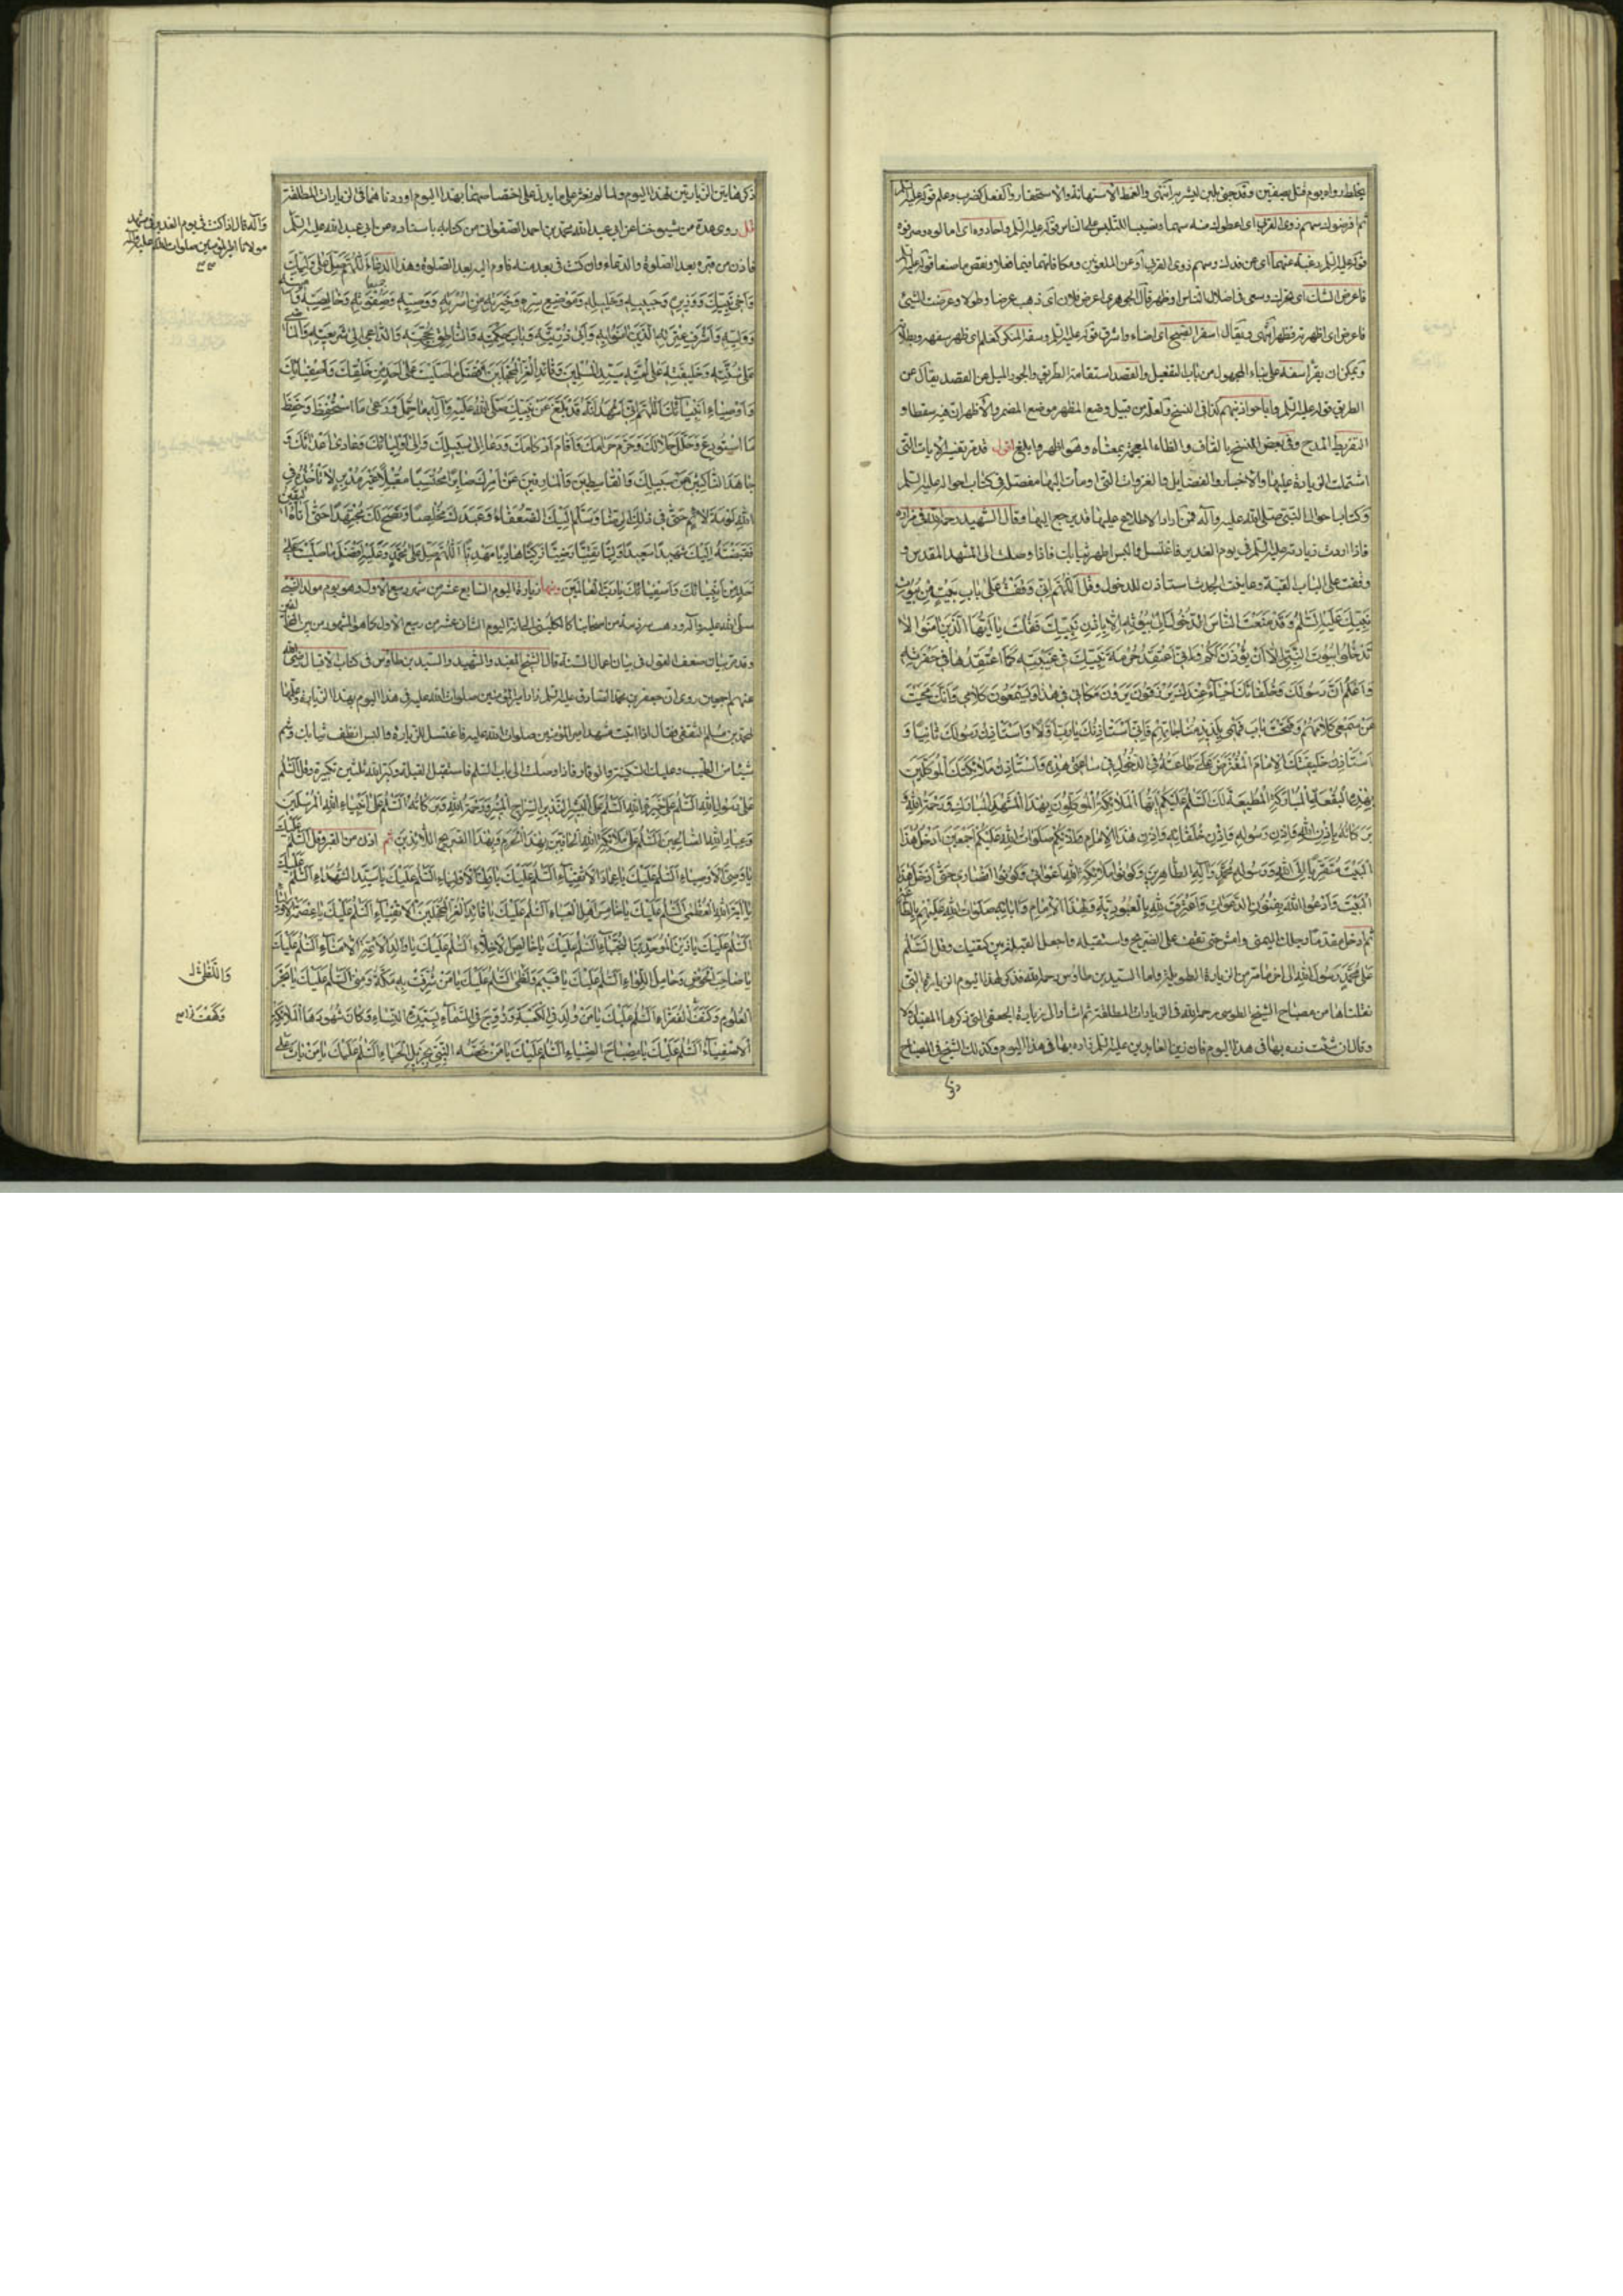 ثم فرضوك سهم ذوي القربى اي اعطوك منه سهما ونصيبا للتلبيس على الناس قوله عليه السلم واحادوه اي امالوه وصرفوه
قوله عليه السلم رغبة عنهما اي عن فدك وسهم ذوي القربى او عن الملعونين ومكافاتهما فيما ضلا ونقص ما صنعا قوله عليه السلم
فاعرض الشك اي تحرك وسعى في اضلال الناس او ظهر قال الجوهري اعرض فلان اي ذهب عرضا وطولا وعرضت الشيء
فاعرض اي اظهرته فظهر انتهى ويقال اسفر الصبح اي اضاء واشرق قوله عليه السلم وسفه المنكر كعلم اي ظهر سفهه وبطلانه
ويمكن ان يقرأ سفه على بناء المجهول من باب التفعيل والقصد استقامة الطريق والجور الميل عن القصد يقال عن
الطريق قوله عليه السلم كذا في النسخ ولعله من قبيل وضع المظهر موضع المضمر والاظهر ان فيه سقطا و
التقريظ المدح وفي بعض النسخ بالقاف والظاء المعجمة بمعناه وهو اظهر وابلغ اقول قد مر تفسير الايات التي
اشتملت الزيارة عليها والاخبار والفضايل والغزوات التي اومأت اليها مفصلا في كتاب احواله عليه السلم
وكتاب احوال النبي صلى الله عليه وآله فمن اراد الاطلاع عليها فليرجع اليها وقال الشهيد رحمه الله في مزاره
فاذا اردت زيارته عليه السلم في يوم الغدير فاغتسل والبس اطهر ثيابك فاذا وصلت الى المشهد المقدس و
وقفت على الباب القبة وعاينت الجدث استأذن للدخول وقل اَللّهُمَّ اِنّي وَقَفْتُ عَلى بابِ بَيْتٍ مِنْ بُيُوتِ
نَبِيِّكَ عَلَيْهِ السَّلمُ وَقَدْ مَنَعْتَ النّاسَ الدُّخُولَ اِلى بُيُوتِهِ اِلّا بِاِذْنِ نَبِيِّكَ فَقُلْتَ يا اَيُّهَا الَّذينَ امَنُوا لا
تَدْخُلُوا بُيُوتَ النَّبِيِّ اِلّا اَنْ يُؤْذَنَ لَكُمْ وَاِنّي اَعْتَقِدُ حُرْمَةَ نَبِيِّكَ في غَيْبَتِهِ كَما اَعْتَقِدُها في حَضْرَتِهِ
وَاَعْلَمُ اَنَّ رَسُولَكَ وَخُلَفائَكَ اَحْياءٌ عِنْدَكَ يُرْزَقُونَ يَرَوْنَ مَكاني في هذا وَيَسْمَعُونَ كَلامي وَاَنَّكَ حَجَبْتَ
عَنْ سَمْعي كَلامَهُمْ وَفَتَحْتَ بابَ فَهْمي بِلَذيذِ مُناجاتِهِمْ فَاِنّي اَسْتَأْذِنُكَ يا رَبِّ اَوَّلاً وَاَسْتَأْذِنُ رَسُولَكَ ثانِياً وَ
اَسْتَأْذِنُ خَليفَتَكَ الاِمامَ الْمُفْتَرَضَ عَلَيَّ طاعَتُهُ فِي الدُّخُولِ في ساعَتي هذِهِ وَاَسْتَأْذِنُ مَلائِكَتَكَ الْمُوَكَّلينَ
بِهذِهِ الْبُقْعَةِ الْمُبارَكَةِ الْمُطيعَةَ لَكَ اَلسَّلمُ عَلَيْكُمْ اَيُّهَا الْمَلائِكَةُ الْمُوَكَّلُونَ بِهذَا الْمَشْهَدِ الْمُبارَكِ وَرَحْمَةُ اللهِ وَ
بَرَكاتُهُ بِاِذْنِ اللهِ وَاِذْنِ رَسُولِهِ وَاِذْنِ خُلَفائِهِ وَاِذْنِ هذَا الاِمامِ وَاِذْنِكُمْ صَلَواتُ اللهِ عَلَيْكُمْ اَجْمَعينَ اَدْخُلُ هذَا
الْبَيْتَ مُتَقَرِّباً اِلَى اللهِ وَرَسُولِهِ مُحَمَّدٍ وَآلِهِ الطّاهِرينَ وَكُونُوا مَلائِكَةَ اللهِ اَعْواني وَكُونُوا اَنْصاري حَتّى اَدْخُلَ هذَا
الْبَيْتَ وَاَدْعُوَ اللهَ بِفُنُونِ الدَّعَواتِ وَاَعْتَرِفَ لِلّهِ بِالْعُبُودِيَّةِ وَلِهذَا الاِمامِ وَآبائِهِ صَلَواتُ اللهِ عَلَيْهِمْ بِالطّاعَةِ
ثم ادخل مقدما رجلك اليمنى وامش حتى تقف على الضريح واستقبله واجعل القبلة بين كتفيك وقل اَلسَّلمُ
عَلى مُحَمَّدٍ رَسُولِ اللهِ الى اخر ما مر من الزيارة الطويلة واما السيد بن طاوس رحمه الله فذكر لهذا اليوم الزيارة التي
نقلناها من مصباح الشيخ الطوسي رحمه الله في الزيارات المطلقة ثم اشار الى زيارة الجعفي التي ذكرها المفيد
وقال ان شئت زره بها في هذا اليوم فان زين العابدين عليه السلم زاره بها في هذا اليوم وكذلك الشيخ في المصباح
ذكر هاتين الزيارتين لهذا اليوم ولما لم نعثر على ما يدل على اختصاصهما بهذا اليوم اوردناهما في الزيارات المطلقة
قل روى عدة من شيوخنا عن ابي عبد الله محمد بن احمد الصفواني من كتابه باسناده عن ابي عبد الله عليه السلم
وآله قال اذا كنت في يوم الغدير في مشهد
مولانا امير المؤمنين صلوات الله عليه وآله
فادن من قبره بعد الصلوة والدعاء وان كنت في بعد منه فاوم اليه بعد الصلوة وهذا الدعاء اَللّهُمَّ صَلِّ عَلى وَلِيِّكَ
وَاَخي نَبِيِّكَ وَوَزيرِهِ وَحَبيبِهِ وَخَليلِهِ وَمَوْضِعِ سِرِّهِ وَخِيَرَتِهِ مِنْ اُسْرَتِهِ وَوَصِيِّهِ وَصَفْوَتِهِ وَخالِصَتِهِ وَاَمينِهِ
وَوَلِيِّهِ وَاَشْرَفِ عِتْرَتِهِ الَّذينَ آمَنُوا بِهِ وَاَبي ذُرِّيَّتِهِ وَبابِ حِكْمَتِهِ وَالنّاطِقِ بِحُجَّتِهِ وَالدّاعي اِلى شَريعَتِهِ وَالْماضي
عَلى سُنَّتِهِ وَخَليفَتِهِ عَلى اُمَّتِهِ سَيِّدِ الْمُسْلِمينَ وَقائِدِ الْغُرِّ الْمُحَجَّلينَ اَفْضَلَ ما صَلَّيْتَ عَلى اَحَدٍ مِنْ خَلْقِكَ وَاَصْفِيائِكَ
وَاَوْصِياءِ اَنْبِيائِكَ اَللّهُمَّ اِنّي اَشْهَدُ اَنَّهُ قَدْ بَلَّغَ عَنْ نَبِيِّكَ صَلَّى اللهُ عَلَيْهِ وَآلِهِ ما حُمِّلَ وَرَعى مَا اسْتُحْفِظَ وَحَفِظَ
مَا اسْتُودِعَ وَحَلَّلَ حَلالَكَ وَحَرَّمَ حَرامَكَ وَاَقامَ اَحْكامَكَ وَدَعا اِلى سَبيلِكَ وَوالى اَوْلِيائَكَ وَعادى اَعْدائَكَ وَ
جاهَدَ النّاكِثينَ عَنْ سَبيلِكَ وَالْقاسِطينَ وَالْمارِقينَ عَنْ اَمْرِكَ صابِراً مُحْتَسِباً مُقْبِلاً غَيْرَ مُدْبِرٍ لا تَأْخُذُهُ فِي
اللهِ لَوْمَةُ لائِمٍ حَتّى بَلَغَ في ذلِكَ الرِّضا وَسَلَّمَ اِلَيْكَ الْقَضاءَ وَعَبَدَكَ مُخْلِصاً وَنَصَحَ لَكَ مُجْتَهِداً حَتّى اَتاهُ الْيَقينُ
فَقَبَضْتَهُ اِلَيْكَ شَهيداً سَعيداً وَلِيّاً تَقِيّاً رَضِيّاً زَكِيّاً هادِياً مَهْدِيّاً اَللّهُمَّ صَلِّ عَلى مُحَمَّدٍ وَعَلَيْهِ اَفْضَلَ ما صَلَّيْتَ عَلى
اَحَدٍ مِنْ اَنْبِيائِكَ وَاَصْفِيائِكَ يا رَبَّ الْعالَمينَ ومنها زيارة اليوم السابع عشر من شهر ربيع الاول وهو يوم مولد النبي
صلى الله عليه وآله وذهب شرذمة من اصحابنا كالكليني الى انه اليوم الثاني عشر من ربيع الاول كما هو المشهور بين المخالفين
وقد مر بيان ضعف القول في بيان اعمال السنة قال الشيخ المفيد والشهيد والسيد بن طاوس في كتاب الاقبال رضي الله
عنهم اجمعين روى ان جعفر بن محمد الصادق عليه السلم زار امير المؤمنين صلوات الله عليه في هذا اليوم بهذا الزيارة وعلمها
لمحمد بن مسلم الثقفي فقال اذا اتيت مشهد امير المؤمنين صلوات الله عليه فاغتسل للزيارة والبس انظف ثيابك وشم
شيئا من الطيب وعليك السكينة والوقار فاذا وصلت الى باب السلم فاستقبل القبلة وكبر الله ثلثين تكبيرة وقل اَلسَّلمُ
عَلى رَسُولِ اللهِ اَلسَّلمُ عَلى خِيَرَةِ اللهِ اَلسَّلمُ عَلَى الْبَشيرِ النَّذيرِ السِّراجِ الْمُنيرِ وَرَحْمَةُ اللهِ وَبَرَكاتُهُ اَلسَّلمُ عَلى اَنْبِياءِ اللهِ الْمُرْسَلينَ
وَعِبادِ اللهِ الصّالِحينَ اَلسَّلمُ عَلى مَلائِكَةِ اللهِ الْحافّينَ بِهذَا الْحَرَمِ وَبِهذَا الضَّريحِ اللّائِذينَ بِهِ ثم ادن من القبر وقل اَلسَّلمُ عَلَيْكَ
يا وَصِيَّ الاَوْصِياءِ اَلسَّلمُ عَلَيْكَ يا عِمادَ الاَتْقِياءِ اَلسَّلمُ عَلَيْكَ يا وَلِيَّ الاَوْلِياءِ اَلسَّلمُ عَلَيْكَ يا سَيِّدَ الشُّهَداءِ اَلسَّلمُ عَلَيْكَ
يا آيَةَ اللهِ الْعُظْمى اَلسَّلمُ عَلَيْكَ يا خامِسَ اَهْلِ الْعَباءِ اَلسَّلمُ عَلَيْكَ يا قائِدَ الْغُرِّ الْمُحَجَّلينَ الاَتْقِياءِ اَلسَّلمُ عَلَيْكَ يا عِصْمَةَ الاَوْلِياءِ
اَلسَّلمُ عَلَيْكَ يا زَيْنَ الْمُوَحِّدينَ النُّجَباءِ اَلسَّلمُ عَلَيْكَ يا خالِصَ الاَخِلّاءِ اَلسَّلمُ عَلَيْكَ يا والِدَ الاَئِمَّةِ الاُمَناءِ اَلسَّلمُ عَلَيْكَ
يا صاحِبَ الْحَوْضِ وَحامِلَ اللِّواءِ اَلسَّلمُ عَلَيْكَ يا قَسيمَ وَلَظى اَلسَّلمُ عَلَيْكَ يا مَنْ شُرِّفَتْ بِهِ مَكَّةُ وَمِنى اَلسَّلمُ عَلَيْكَ يا بَحْرَ
الْعُلُومِ وَكَنَفَ الْفُقَراءِ اَلسَّلمُ عَلَيْكَ يا مَنْ وُلِدَ فِي الْكَعْبَةِ وَزُوِّجَ فِي السَّماءِ بِسَيِّدَةِ النِّساءِ وَكانَ شُهُودُهَا الْمَلائِكَةَ
الاَصْفِياءَ اَلسَّلمُ عَلَيْكَ يا مِصْباحَ الضِّياءِ اَلسَّلمُ عَلَيْكَ يا مَنْ خَصَّهُ النَّبِيُّ بِجَزيلِ الْحِباءِ اَلسَّلمُ عَلَيْكَ يا مَنْ باتَ عَلى